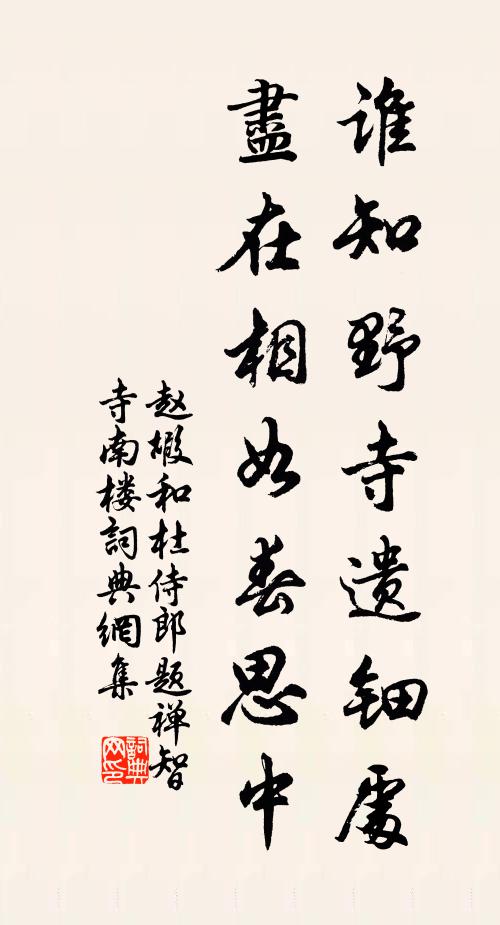 谁知野寺遗钿處
盡在相如春思中
赵嘏和杜侍郎题禅智
寺南楼詞典網集
詞典
网印